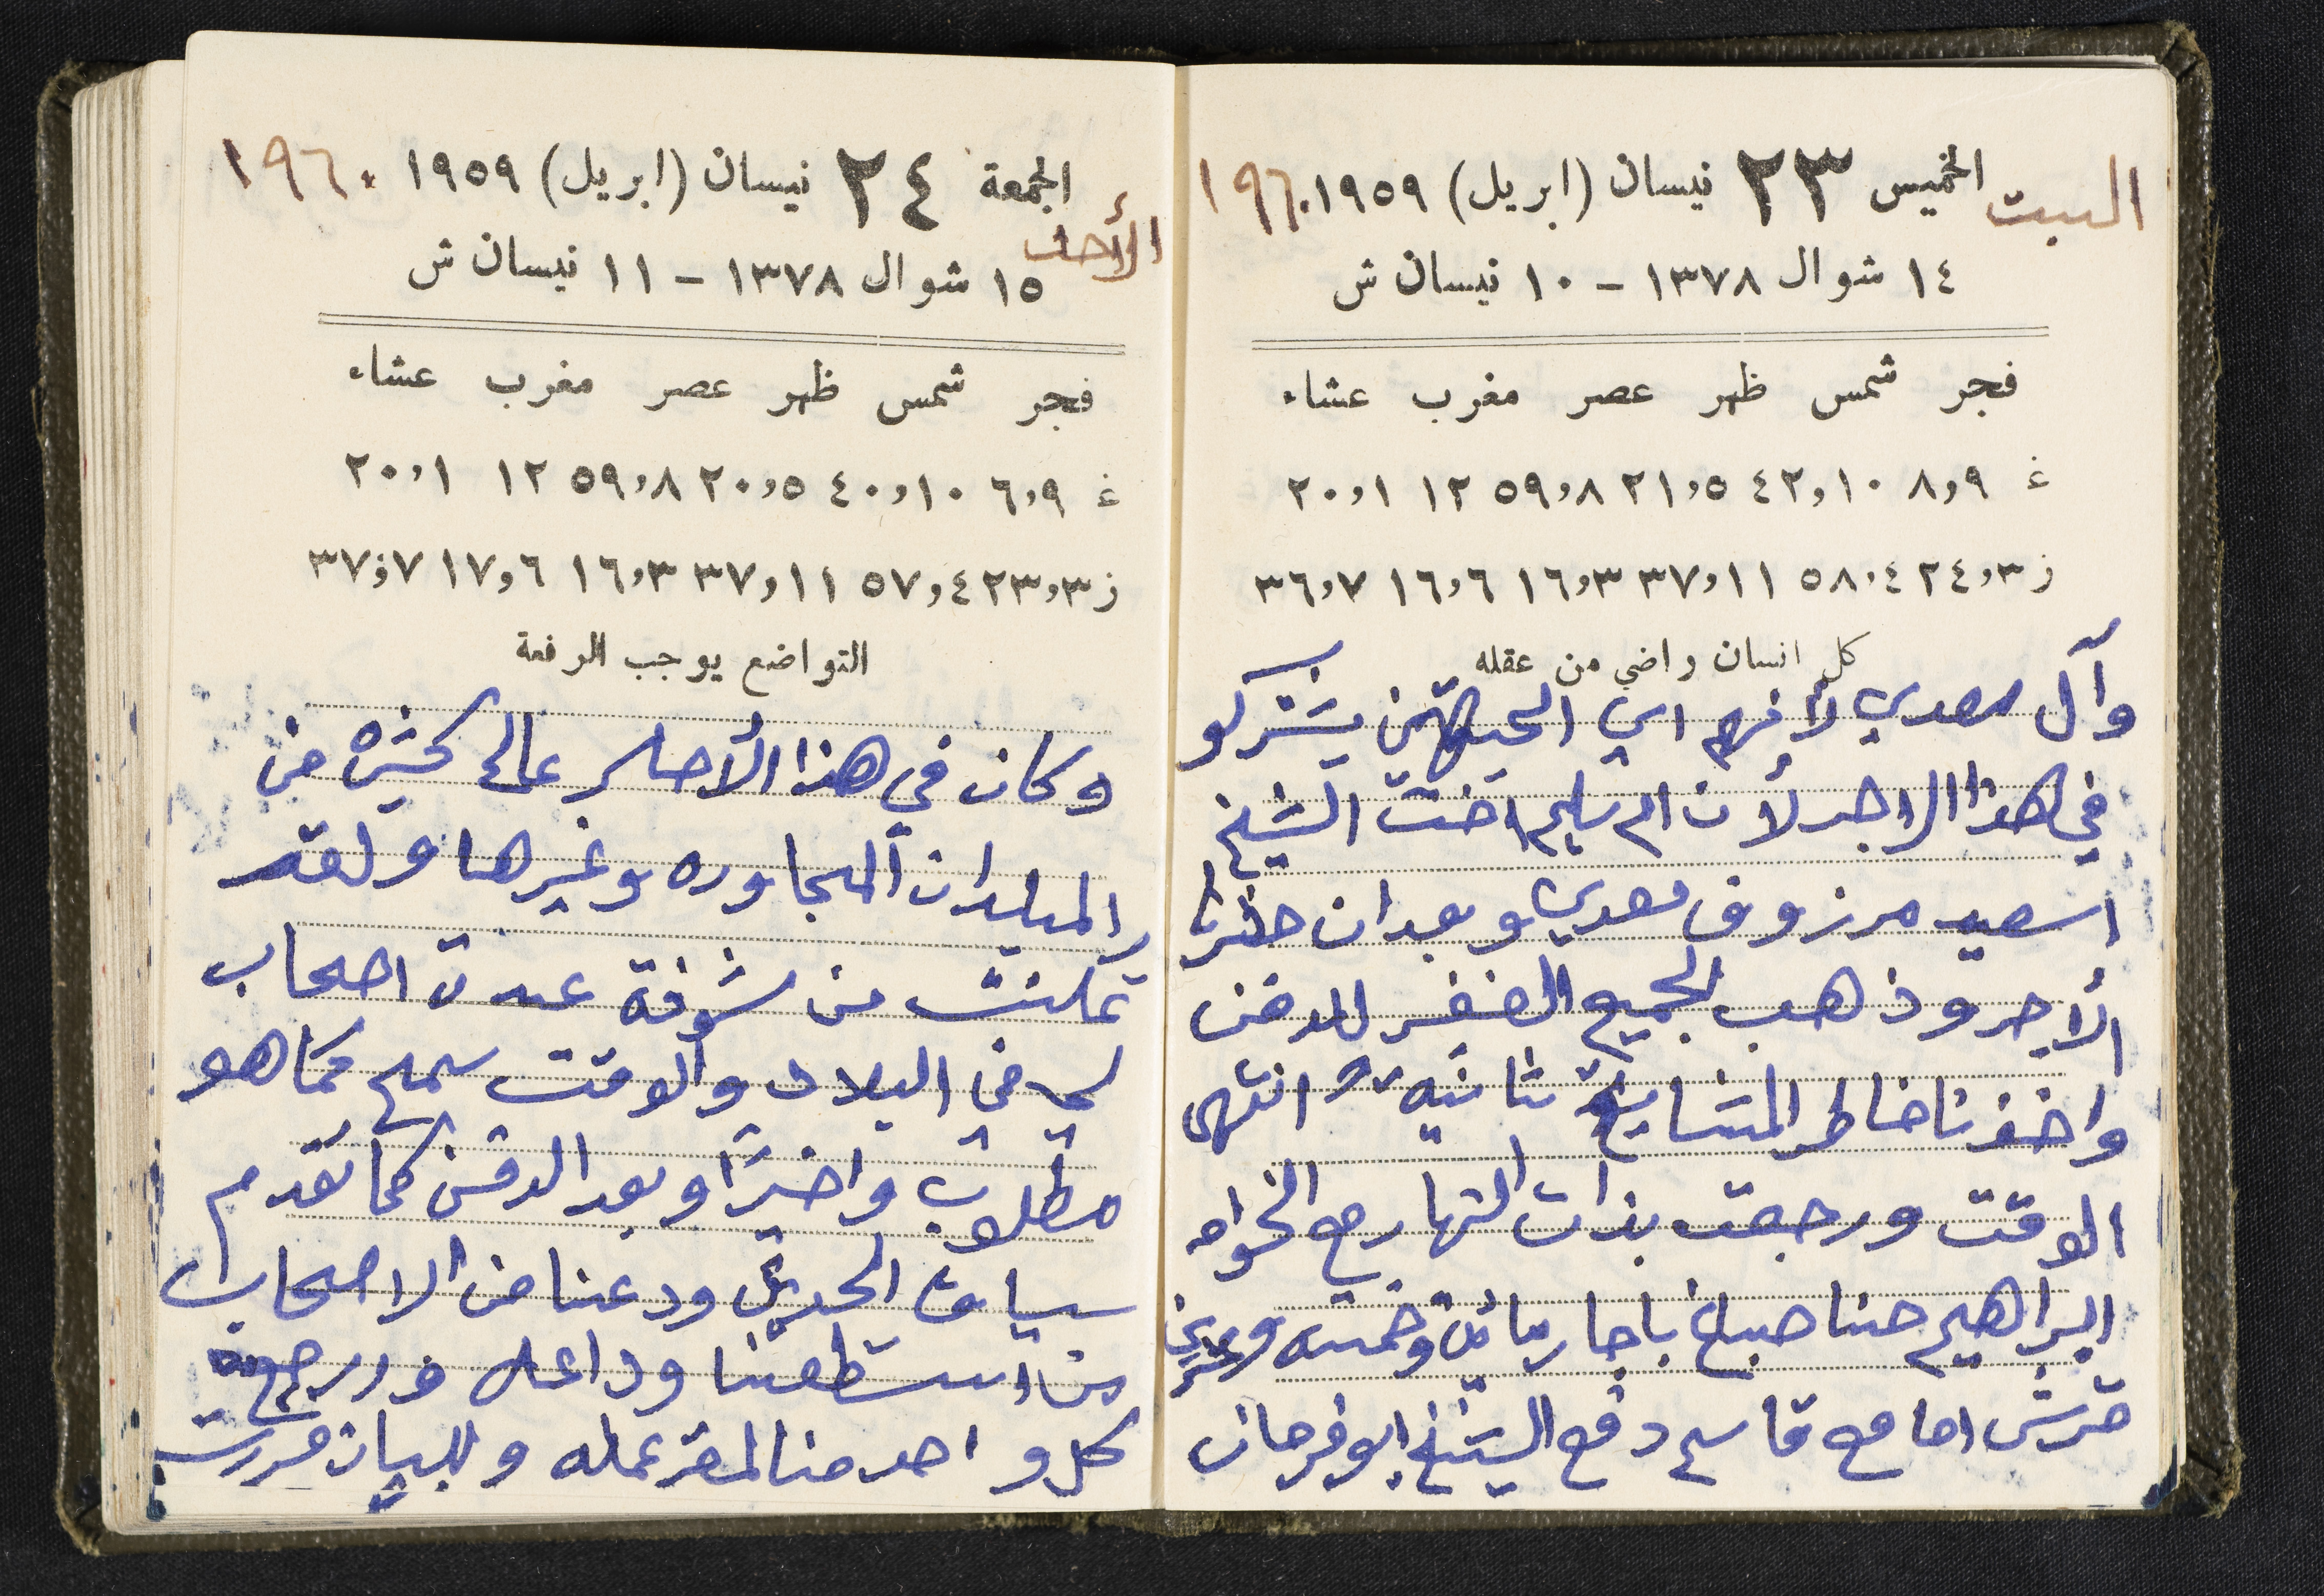 السبت الخميس ٢٣ نيسان (ابريل) ١٩٥٩ ١٩٦٠
١٤ شوال ١٣٧٨ - ١٠ نيسان ش
فجر شمس ظهر عصر مغرب عشاء
غ ٨,٩ ٤٢,١٠ ٢١,٥ ٥٩,٨ ١٢ ٢٠,١
ز ٢٤,٣ ٥٨,٤ ٣٧,١١ ١٦,٣ ١٦,٦ ٣٦,٧
كل انسان راضي من عقله
وآل معدي لأنهم اي الجهتين يشتركو
في هذا الاجر لأن ام سليم اخت الشيخ
اسعيد مرزوق معدي وبعدان حضرنا
الأجر وذهب الجميع الغفير للدفن
واخذنا خاطر المشايخ ثانية انتهى
الوقت ورجعت بذات النهار مع الخواجه
ابراهيم حنا صباغ باجار مائة وخمسه وعشرين
قرش اما مع قاسم دفع الشيخ ابو فرحان
الأحد الجمعة ٢٤ نيسان (ابريل) ١٩٥٩ ١٩٦٠
١٥ شوال ١٣٧٨ - ١١ نيسان ش
فجر شمس ظهر عصر مغرب عشاء
غ ٦,٩ ٤٠,١٠ ٢٠,٥ ٥٩,٨ ١٢ ٢٠,١
ز ٢٣,٣ ٥٧,٤ ٣٧,١١ ١٦,٣ ١٧,٦ ٣٧,٧
التواضع يوجب الرفعة
وكان في هذا الأجر عالم كثيره من
البلدان المجاوره وغيرها ولقد
تمكنت من شوفة عدة اصحاب
لي في البلاد والوقت سمح كما هو
مطلوب واخيرًا وبعد الدفن كما تقدم
سياق الحديث ودعنا من الاصحاب
من استطعنا وداعه ورجع
كل واحد منا لمقر عمله وللبيان مررت